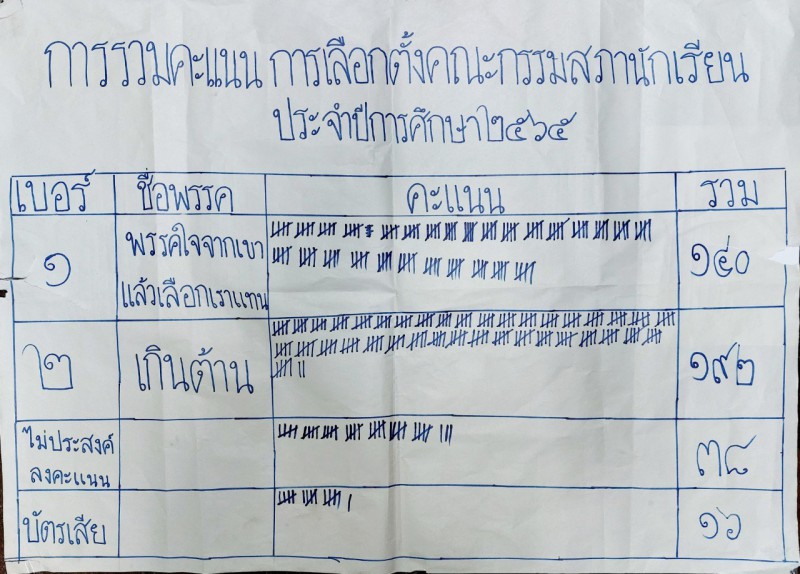 การรวมคะแนน การเลือกตั้งคณะกรรมสภานักเรียน
ประจำปีการศึกษา๒๕๖๕
เบอร์ ชื่อพรรค คะแนน รวม
๑ พรรคใจจากเขา ๑๔๐
แล้วเลือกเราแทน
๒ เกินต้าน ๑๙๒
ไม่ประสงค์
ลงคะแนน ๓๘
บัตรเสีย ๑๖